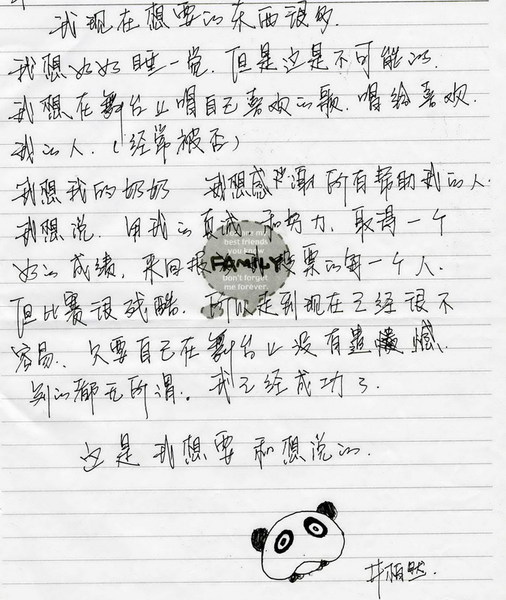 我现在想要的东西很多.
我想好好睡一觉.但是这是不可能的.
我想在舞台上唱自己喜欢的歌.唱给喜欢.
我的人.(经常被否)
我想我的奶奶 我想感谢所有帮助我的人.
我想说.用我的真诚和努力.取得一个
best friends
you know
好的成绩.来回报FAMILY投票的每一个人.
don't forget
me forever
但比赛很残酷.所以走到现在已经很不
容易.只要自己在舞台上没有遗憾.
别的都无所谓.我已经成功了.
这是我想要和想说的.
井柏然.